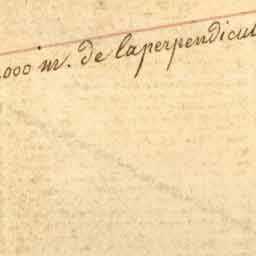 000 m. de laperpendicul